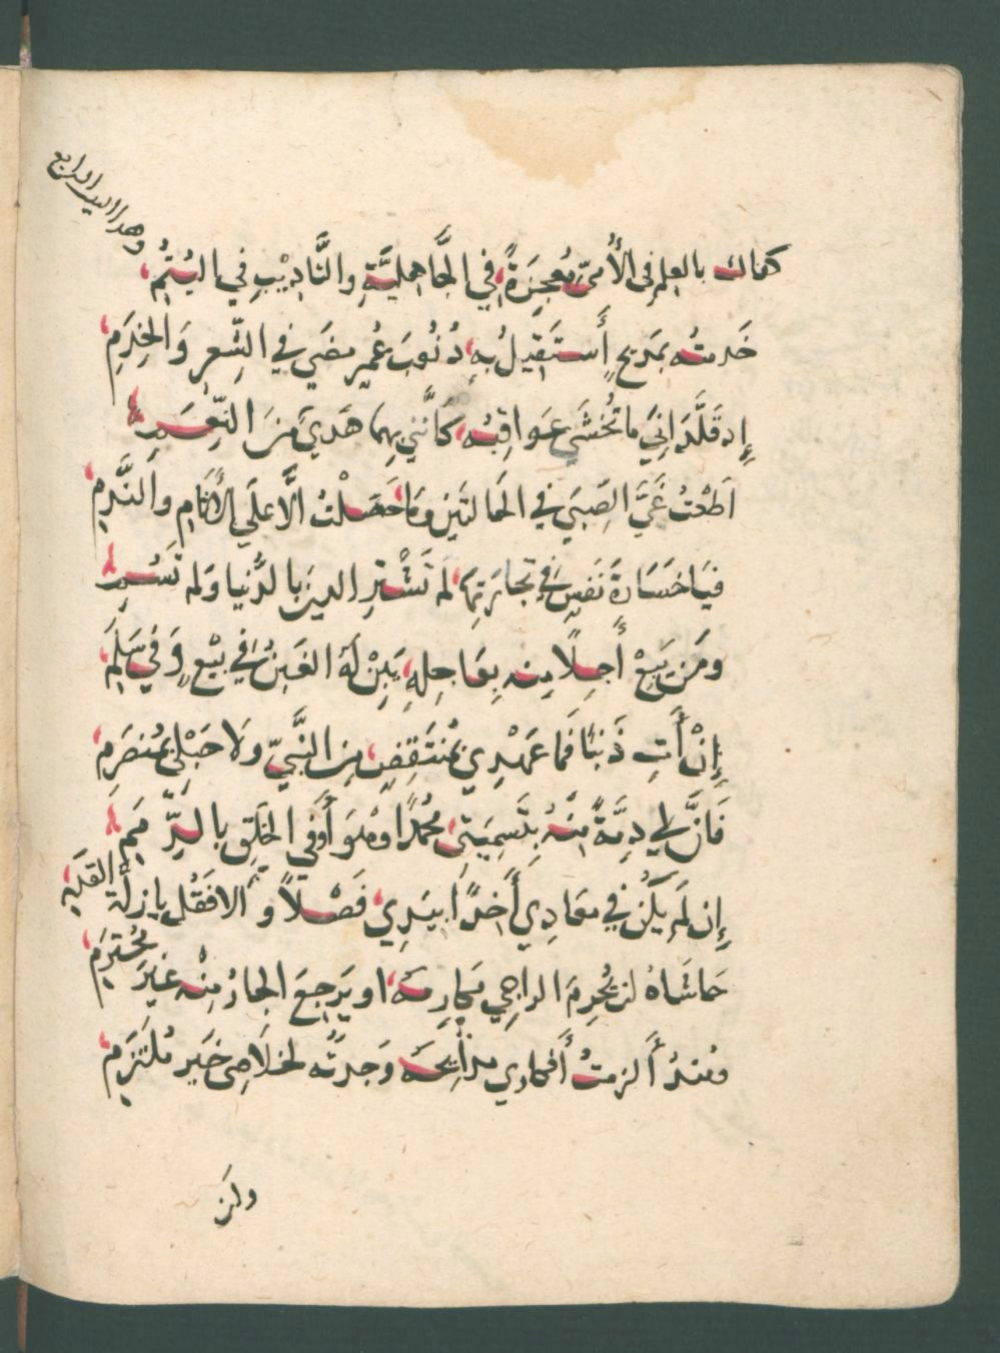 وهذا البيت الرابع
كفاك بالعلم في الأُمىّ مُعجِزَةً في الجَّاهليَّةِ والتَّادِيْبِ في اليُتُمِ
خَدمتُه بمَديحٍ أَستَقِيلُ بهِ ذُنُوبَ عُمرٍ مضَي في الشِّعرِ وَالخِدَمِ
إِد قَلَّدَانِيَ ما تُخشَي عَوَاقِبُه كَأنَّني بِهِمَا هَديٌ مِنَ النِّعَمِ
اَطَعْتُ غَيَّ الصِّبَي في الحَالتَينِ وَمَا حَصَلْتُ اِلَّا علَي الأثامِ والنَّدمِ
فيَا خَسَارَةَ نَفسٍ في تجارَتِهَا لَم تَشْتَرِ الدين بالدُّنيا وَلم تَسُمِ
ومَن يَبِعْ أَجِلاً مِنه بِعَاجِلِهِ يَبِنْ لَهُ الغَبنُ في بَيْعٍ وَفي سَلَمِ
إِنْ أَتِ ذَنبًا فَمَا عَهْدِي بمُنتَقِضٍ مِنَ النَّبيّ ولَا حَبْلِي بمُنصَرِمِ
فَانَّ لي ذِمَّةً مِنْهُ بِتَسمِيَتى مُحَمَّدًا وهُوَ أَوفَي الخَلْقِ بالذِّمَمِ
إِن لَم يَكُن في مَعَادِي أَخِذًا بيَدِي فَضْلاً وَاِلا فَقُل يا زلَّةَ القَدَمِ
حَاشَاهُ ان يُحْرِمَ الراجِي مَكارِمَهُ او يَرجِعَ الجارُ مِنْه غيرَ مُحتَرَمِ
ومُنذُ أَلزمتُ أَفكاري مدَائِحَهُ وَجَدتُه لخلَاصِى خَير مُلتَزَمِ
ولن